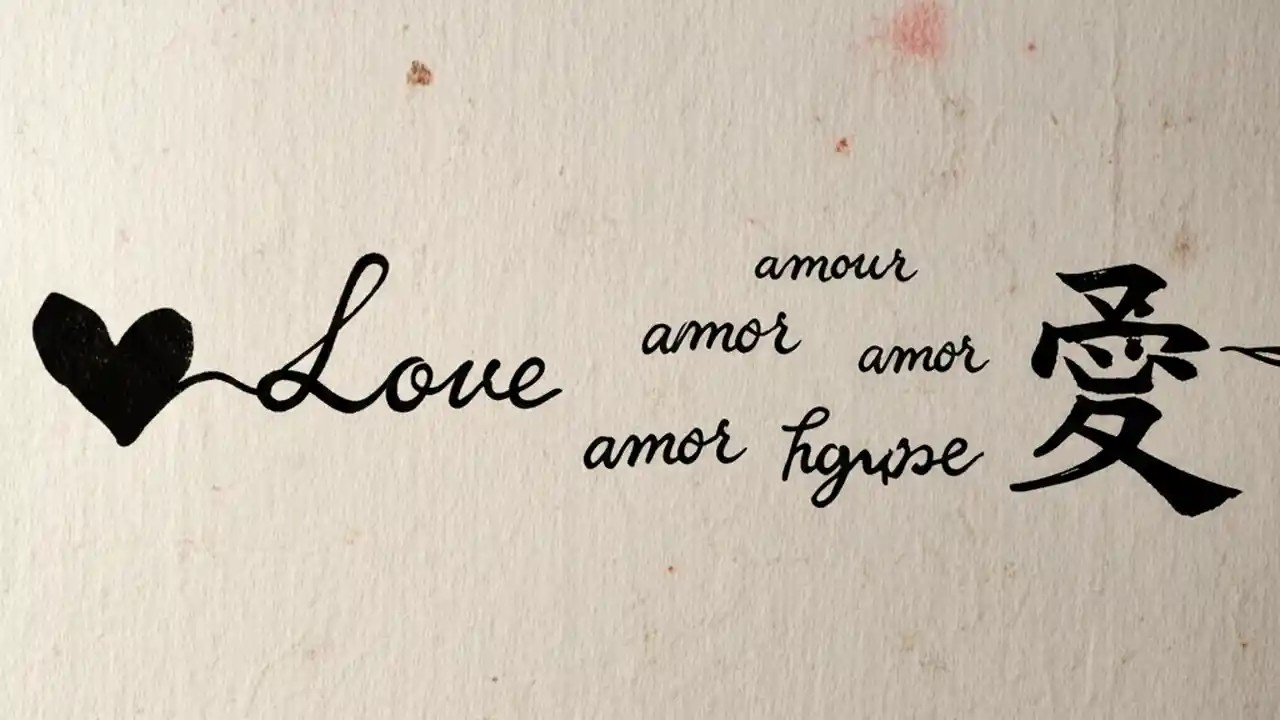 Love
amour
amor
amor
amor
愛